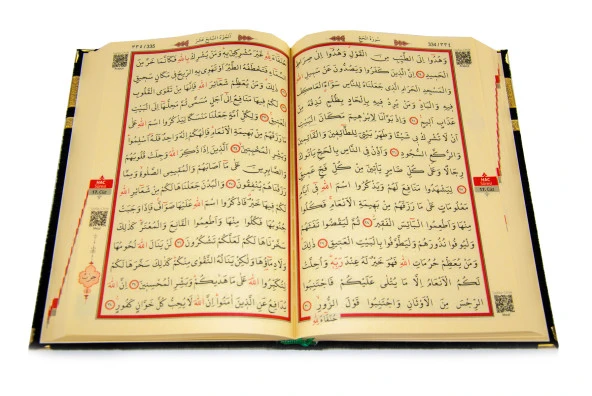 الجزء السابع عشر ٣٣٥ / 335
334 / ٣٣٤ سورة الحج
وَهُدُٓوا اِلَى الطَّيِّبِ مِنَ الْقَوْلِ وَهُدُٓوا اِلٰى صِرَاطِ
الْحَمِيدِ اِنَّ الَّذِينَ كَفَرُوا وَيَصُدُّونَ عَنْ سَبِيلِ اللّٰهِ
وَالْمَسْجِدِ الْحَرَامِ الَّذِي جَعَلْنَاهُ لِلنَّاسِ سَوَٓاءً الْعَاكِفُ
فِيهِ وَالْبَادِ وَمَنْ يُرِدْ فِيهِ بِاِلْحَادٍ بِظُلْمٍ نُذِقْهُ مِنْ
عَذَابٍ اَلِيمٍ وَاِذْ بَوَّأْنَا لِاِبْرٰهِيمَ مَكَانَ الْبَيْتِ
اَنْ لَا تُشْرِكْ بِي شَيْئًا وَطَهِّرْ بَيْتِيَ لِلطَّٓائِفِينَ وَالْقَٓائِمِينَ
وَالرُّكَّعِ السُّجُودِ وَاَذِّنْ فِي النَّاسِ بِالْحَجِّ يَأْتُوكَ
رِجَالًا وَعَلٰى كُلِّ ضَامِرٍ يَأْتِينَ مِنْ كُلِّ فَجٍّ عَمِيقٍ
لِيَشْهَدُوا مَنَافِعَ لَهُمْ وَيَذْكُرُوا اسْمَ اللّٰهِ فِٓي اَيَّامٍ
مَعْلُومَاتٍ عَلٰى مَا رَزَقَهُمْ مِنْ بَهِيمَةِ الْاَنْعَامِ فَكُلُوا
مِنْهَا وَاَطْعِمُوا الْبَٓائِسَ الْفَقِيرَ ثُمَّ لْيَقْضُوا تَفَثَهُمْ
وَلْيُوفُوا نُذُورَهُمْ وَلْيَطَّوَّفُوا بِالْبَيْتِ الْعَتِيقِ ذٰلِكَ
وَمَنْ يُعَظِّمْ حُرُمَاتِ اللّٰهِ فَهُوَ خَيْرٌ لَهُ عِنْدَ رَبِّهِ وَاُحِلَّتْ
لَكُمُ الْاَنْعَامُ اِلَّا مَا يُتْلٰى عَلَيْكُمْ فَاجْتَنِبُوا
الرِّجْسَ مِنَ الْاَوْثَانِ وَاجْتَنِبُوا قَوْلَ الزُّورِ
حُنَفَٓاءَ لِلّٰهِ
حُنَفَٓاءَ لِلّٰهِ غَيْرَ مُشْرِكِينَ بِهِ وَمَنْ يُشْرِكْ بِاللّٰهِ فَكَاَنَّمَا خَرَّ مِنَ
السَّمَٓاءِ فَتَخْطَفُهُ الطَّيْرُ اَوْ تَهْوِي بِهِ الرِّيحُ فِي مَكَانٍ سَحِيقٍ
ذٰلِكَ وَمَنْ يُعَظِّمْ شَعَٓائِرَ اللّٰهِ فَاِنَّهَا مِنْ تَقْوَى الْقُلُوبِ
لَكُمْ فِيهَا مَنَافِعُ اِلٰٓى اَجَلٍ مُسَمًّى ثُمَّ مَحِلُّهَٓا اِلَى الْبَيْتِ
الْعَتِيقِ وَلِكُلِّ اُمَّةٍ جَعَلْنَا مَنْسَكًا لِيَذْكُرُوا اسْمَ اللّٰهِ عَلٰى
مَا رَزَقَهُمْ مِنْ بَهِيمَةِ الْاَنْعَامِ فَاِلٰهُكُمْ اِلٰهٌ وَاحِدٌ فَلَهُٓ اَسْلِمُوا
وَبَشِّرِ الْمُخْبِتِينَ اَلَّذِينَ اِذَا ذُكِرَ اللّٰهُ وَجِلَتْ قُلُوبُهُمْ
وَالصَّابِرِينَ عَلٰى مَٓا اَصَابَهُمْ وَالْمُقِيمِي الصَّلٰوةِ وَمِمَّا
رَزَقْنَاهُمْ يُنْفِقُونَ وَالْبُدْنَ جَعَلْنَاهَا لَكُمْ مِنْ شَعَٓائِرِ اللّٰهِ
لَكُمْ فِيهَا خَيْرٌ فَاذْكُرُوا اسْمَ اللّٰهِ عَلَيْهَا صَوَٓافَّ فَاِذَا وَجَبَتْ
جُنُوبُهَا فَكُلُوا مِنْهَا وَاَطْعِمُوا الْقَانِعَ وَالْمُعْتَرَّ كَذٰلِكَ
سَخَّرْنَاهَا لَكُمْ لَعَلَّكُمْ تَشْكُرُونَ لَنْ يَنَالَ اللّٰهَ لُحُومُهَا
وَلَا دِمَٓاؤُهَا وَلٰكِنْ يَنَالُهُ التَّقْوٰى مِنْكُمْ كَذٰلِكَ سَخَّرَهَا لَكُمْ
لِتُكَبِّرُوا اللّٰهَ عَلٰى مَا هَدٰيكُمْ وَبَشِّرِ الْمُحْسِنِينَ اِنَّ اللّٰهَ
يُدَافِعُ عَنِ الَّذِينَ اٰمَنُوا اِنَّ اللّٰهَ لَا يُحِبُّ كُلَّ خَوَّانٍ كَفُورٍ
HAC
Sûresi
17. Cüz
HAC
Sûresi
17. Cüz